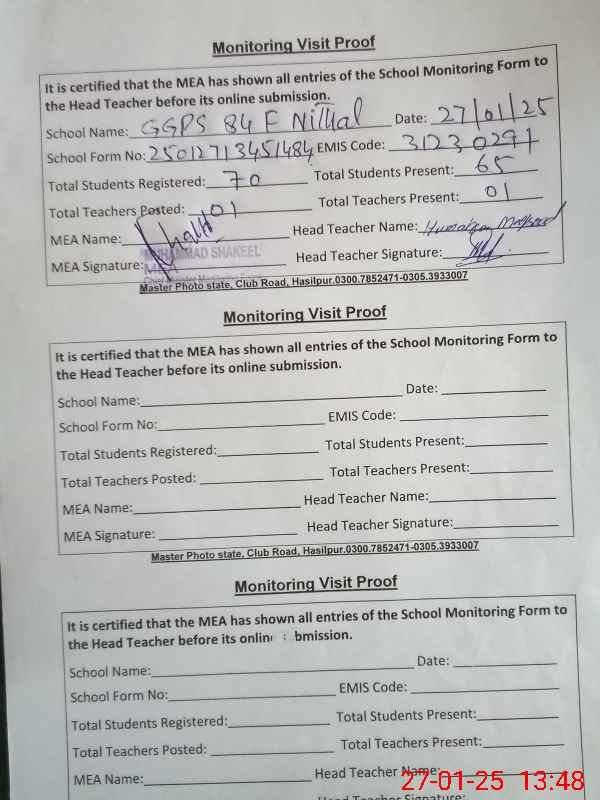 Monitoring Visit Proof
It is certified that the MEA has shown all entries of the School Monitoring Form to
the Head Teacher before its online submission.
School Name: GGPS 84 F Nithal Date: 27/01/25
School Form No: 25012713451484 EMIS Code: 31230297
Total Students Registered: 70 Total Students Present: 65
Total Teachers Posted: 01 Total Teachers Present: 01
MEA Name: Head Teacher Name: Humaira Maqsood
MUHAMMAD SHAKEEL
MEA Signature: MEA Head Teacher Signature:
Master Photo state, Club Road, Hasilpur.0300.7852471-0305.3933007
Monitoring Visit Proof
It is certified that the MEA has shown all entries of the School Monitoring Form to
the Head Teacher before its online submission.
School Name: Date:
School Form No: EMIS Code:
Total Students Registered: Total Students Present:
Total Teachers Posted: Total Teachers Present:
MEA Name: Head Teacher Name:
MEA Signature: Head Teacher Signature:
Master Photo state, Club Road, Hasilpur.0300.7852471-0305.3933007
Monitoring Visit Proof
It is certified that the MEA has shown all entries of the School Monitoring Form to
the Head Teacher before its onlin bmission.
School Name: Date:
School Form No: EMIS Code:
Total Students Registered: Total Students Present:
Total Teachers Posted: Total Teachers Present:
MEA Name: Head Teacher Name:
27-01-25 13:48
Head Teacher Signature: